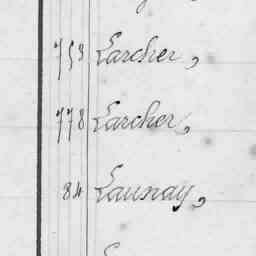 753 Larcher,
778 Larcher,
84 Launay,